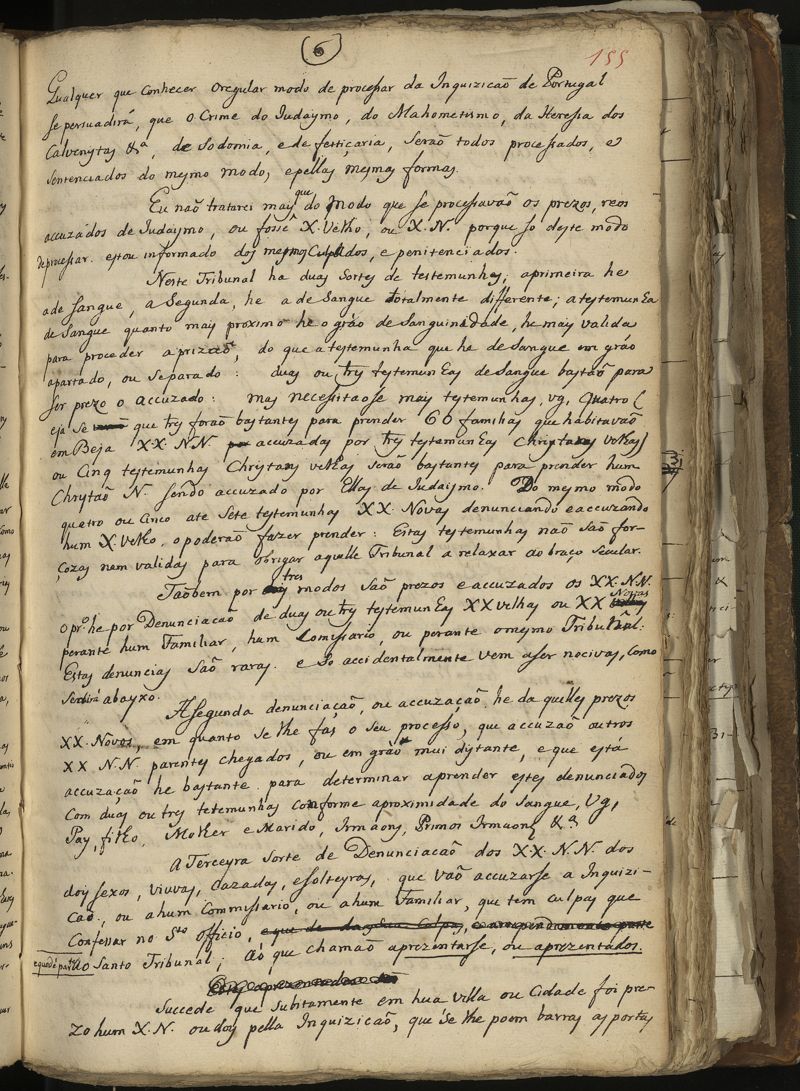 6
155
Qualquer que conhecer oregular modo de processar da Inquizicaõ de Portugal
se persuadirá, que o Crime do Iudaysmo, do Mahometismo, da Heresia dos
Calvenystas &ª, de Sodomia, e de fettiçaria, seraõ todos processados, e
sentenciados do mesmo modo, e pellas mesmas formas.
Eu naõ tratarei mays que do modo que se processavaõ os prezos, reos
accuzados de Iudaysmo, ou fosse X. Velho, ou X.N. porque so deste modo
de processar estou informado dos mesmos Culpados, e penitenciados.
Neste Tribunal ha duas Sortes de testemunhas; aprimeira he
a de sangue, a Segunda, he a de Sangue totalmente differente; a testemunha
de Sangue quanto mays proximo he o gráo de Sanguinidade, he mays valida
para proceder a prizaõ, do que a testemunha que he de Sangue em gráo
apartado, ou Separado: duas ou tres testemunhas de Sangue bastaõ para
ser prezo o accuzado: mas necessitaõse mays testemunhas, vg, quatro (
eja se que tres foraõ bastantes para prender 60 familias que habitavaõ
em Beja XX.NN. accuzadas por tres testemunhas Christans velhas)
ou Cinq testemunhas Chrystans velhas seraõ bastantes para prender hum
Chrystaõ N. sendo accuzado por Ellas de Iudaysmo. Do mesmo modo
quatro ou Cinco ate Sete testemunhas XX. Novas denunciando e accuzando
hum X. Velho, o poderaõ fazer prender: Estas testemunhas naõ saõ for-
çozas nem validas para obrigar aquelle Tribunal a relaxar ao braço Secular.
Taõbem por tres modos saõ prezos e accuzados os XX.NN.
O prº. he por Denunciacaõ de duas ou tres testemunhas XX velhas ou XX Novas
perante hum Familiar, hum Comissario, ou perante o mesmo Tribunal:
Estas denuncias saõ raras. e so accidentalmente vem a ser nocivas, como
se dirá abayxo.
A segunda denunciaçaõ, ou accuzaçaõ he da quelles prezos
XX. Novos, em quanto se lhe fas o seu processo, que accuzaõ outros
XX NN. parentes chegados, ou em gráo mui dystante, e que está
accuzaçaõ he bastante para determinar aprender estes denunciados
Com duas ou tres tetemunhas conforme aproximidade do Sangue, Vg,
Pay, filho, Molher e Marido, Irmaons, Primos Irmaons &ª
A Terceyra Sorte de Denunciacaõ dos XX.N.N. dos
doys sexos, viuvas, Cazadas, e solteyras, que vaõ accuzarse a Inquizi-
caõ, ou ahum Commissario, ou ahum Familiar, que tem culpas que
Confessar no Sto Officio,
ao Santo Tribunal; Aó que chamaõ aprezentarse, ou aprezentados.
Succede que subitamente em hua villa ou Cidade foi pre-
zo hum X.N. ou doys pella Inquizicaõ, que se lhe poem barras as portas